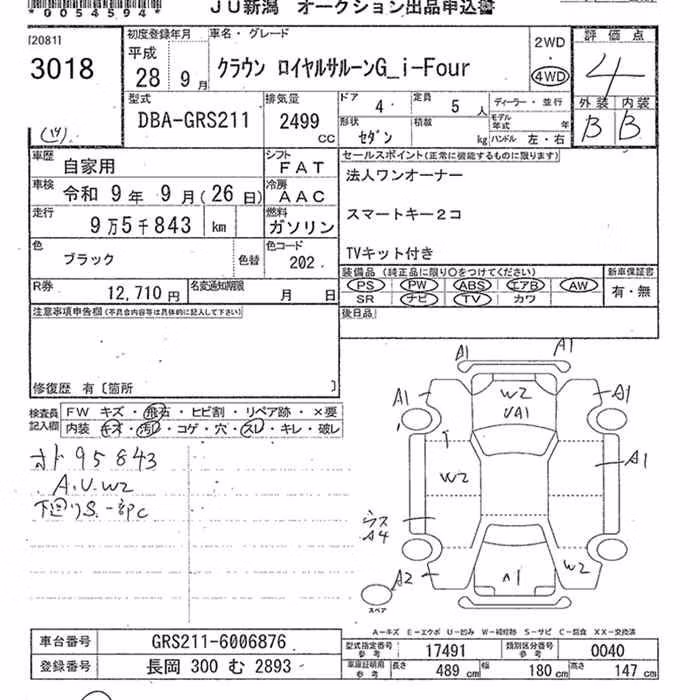 *0054594*
JU新潟 オークション出品申込書
[20811
3018
(19)
初度登録年月
平成
28 9月
車名・グレード
クラウン ロイヤルサルーンG_i-Four
2WD
4WD
評価点
4
外装 内装
B B
型式
DBA-GRS211
排気量
2499 cc
ドア 4 定員 5 人
形状 セダン 積載 kg
ディーラー・並行
モデル年式 年
ハンドル 左・右
車歴 自家用
シフト FAT
車検 令和 9年 9月(26日)
冷房 AAC
走行 9万5千843 km
燃料 ガソリン
色 ブラック 色替
色コード 202
R券 12,710円
名変通知期限 月 日
セールスポイント(正常に機能するものに限ります)
法人ワンオーナー
スマートキー2コ
TVキット付き
装備品(純正品に限り○をつけてください)
PS PW ABS エアB AW
SR ナビ TV カワ
新車保証書
有・無
後日品
注意事項申告欄(不具合内容等は具体的に記入して下さい)
修復歴 有〔箇所 〕
検査員記入欄
FW キズ・飛石・ヒビ割・リペア跡・×要
内装 キズ・汚れ・コゲ・穴・スレ・キレ・破レ
オド95843
A.U.W2
下廻りS.一部C
A1 A1
W2
UA1
A1 A1
W2
A1
ウス
A4
A2
A1
W2
スペア
A-キズ E-エクボ U-凹み W-補修跡 S-サビ C-腐食 XX-交換済
車台番号 GRS211-6006876
登録番号 長岡 300 む 2893
型式指定番号 参考 17491
類別区分番号 参考 0040
車庫証明用 参考 長さ 489 cm 幅 180 cm 高さ 147 cm